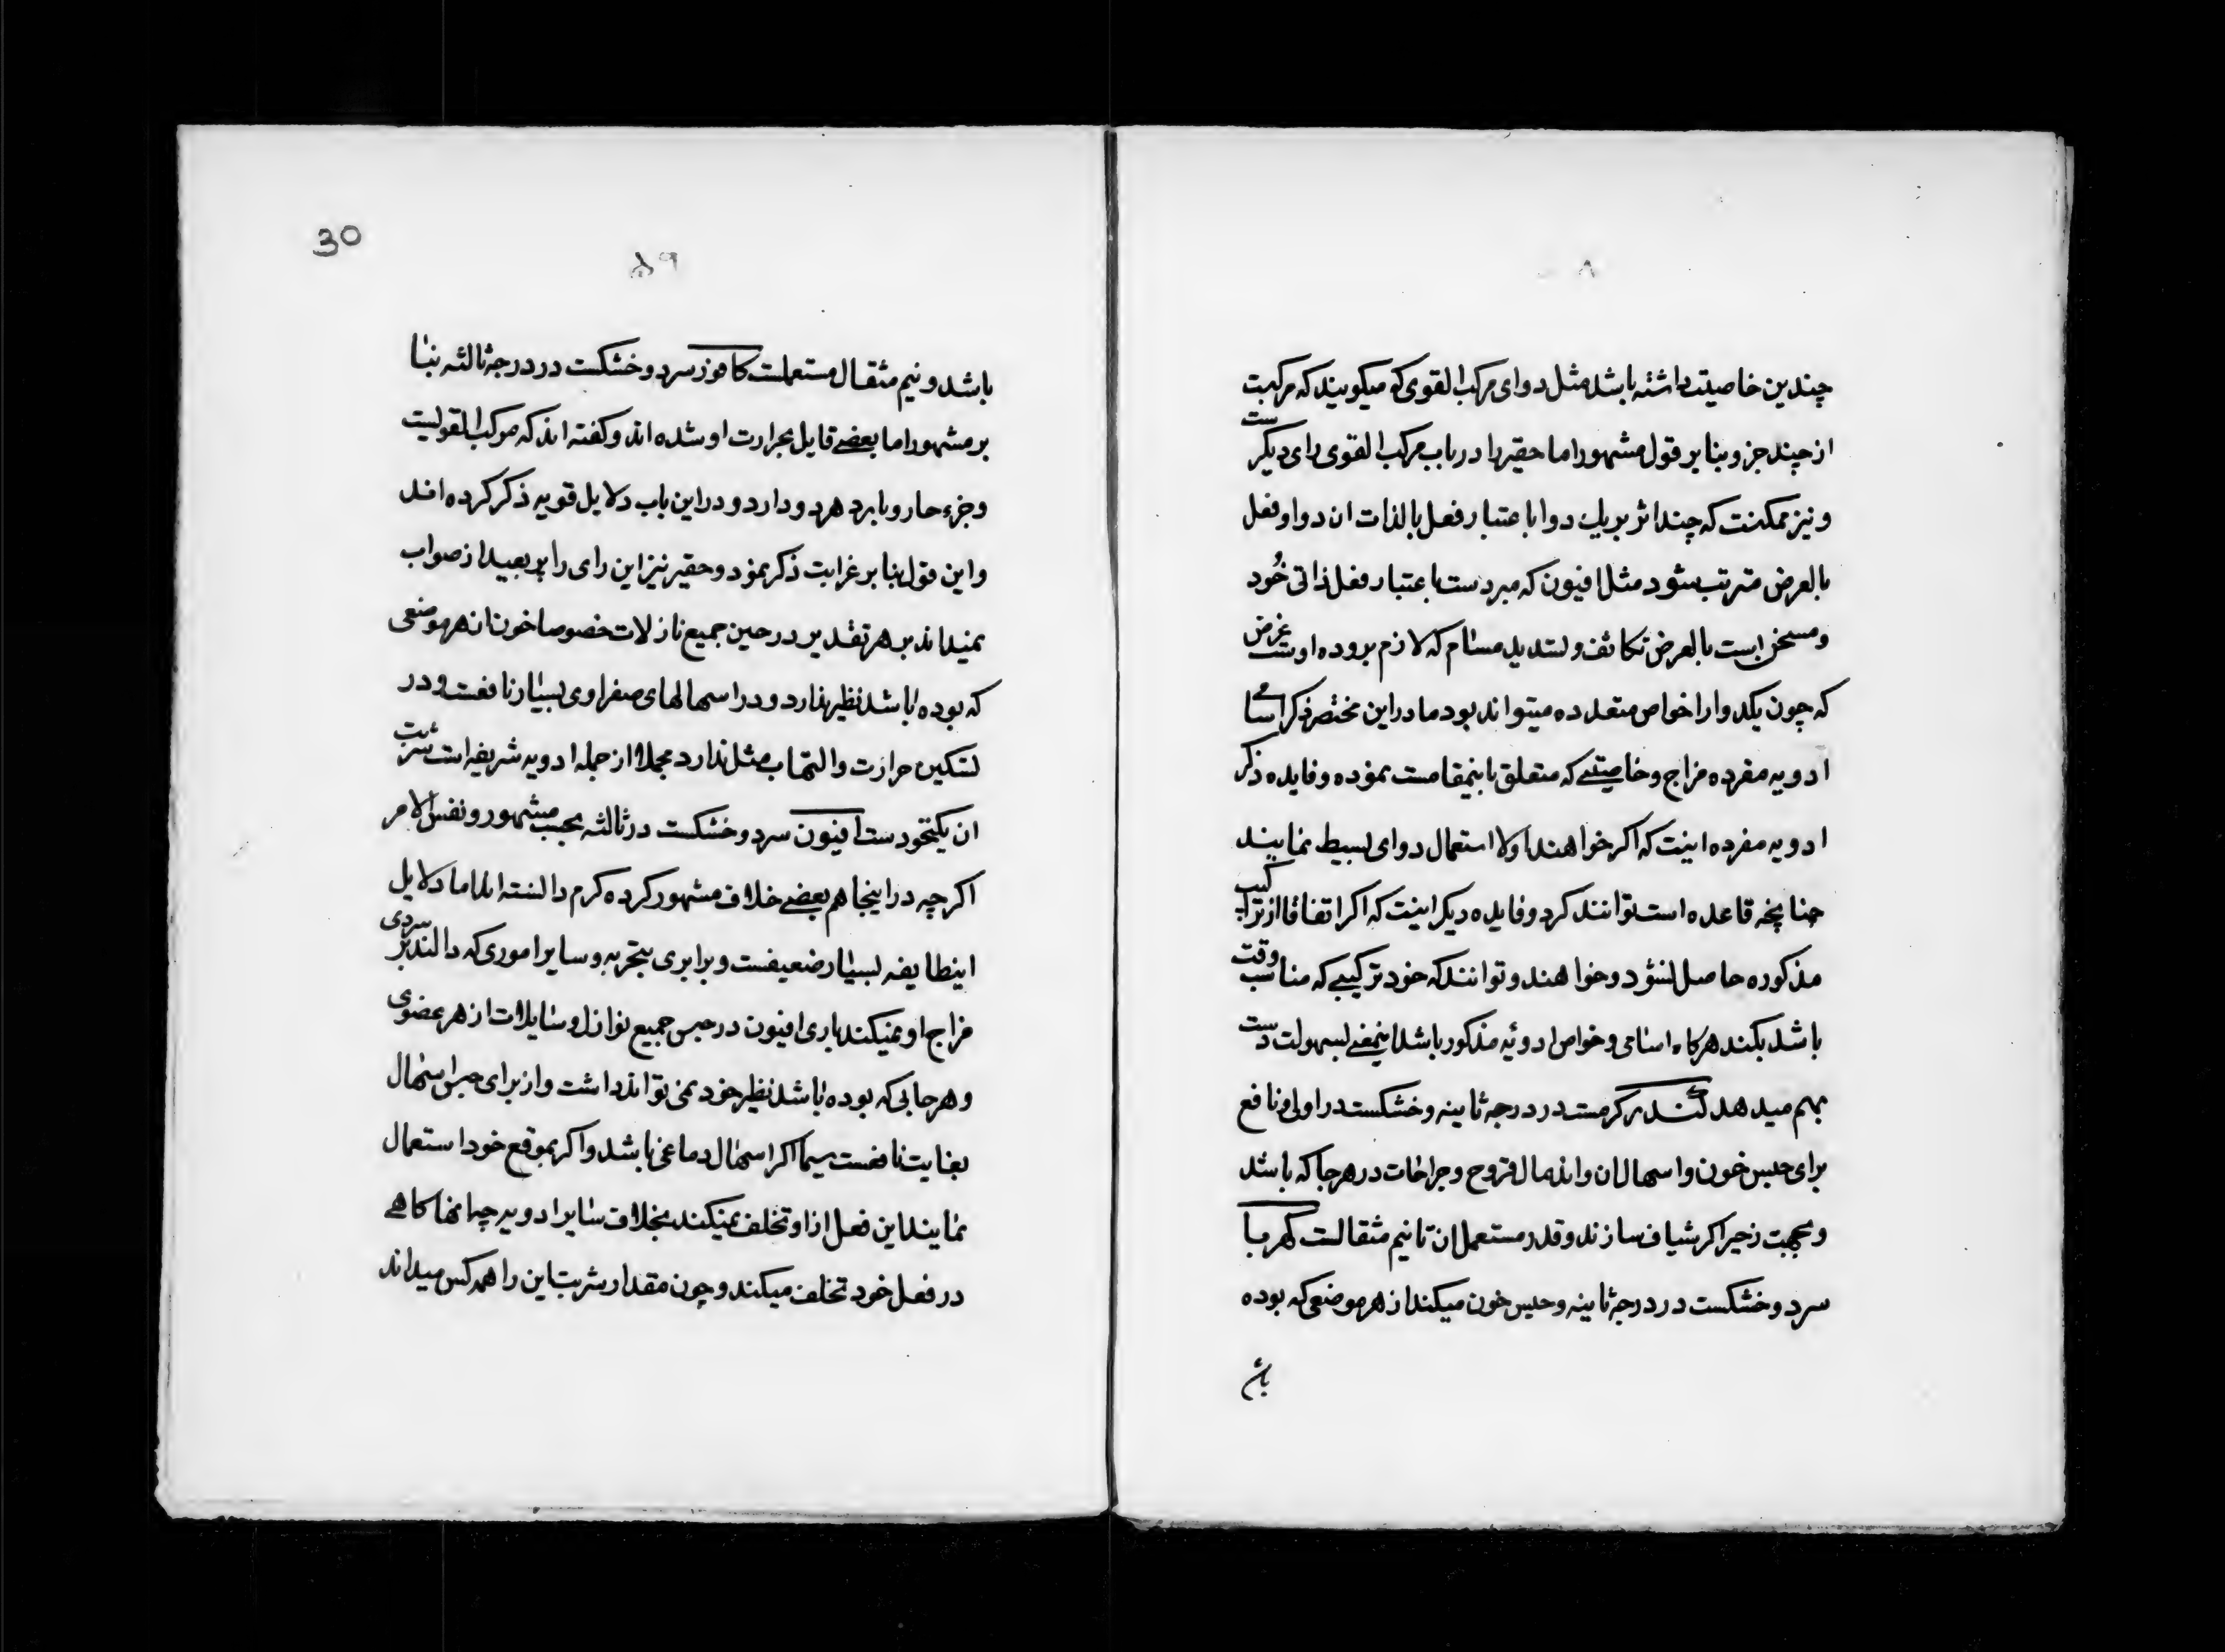 ۸
چندین خاصیت داشته باشد مثل دوای مرکب القوی که میکویند که مرکبت
از چند جزو بنا بر قول مشهور اما حقیر را در باب مرکب القوی رای دیکرست
و نیز ممکنست که چند اثر بر یک دوا باعتبار فعل بالذات ان دوا و فعل
بالعرض مترتب شود مثل افیون که مبردست باعتبار فعل ذاتی خُود
و مسخن است بالعرض تکاثف و تسدید مسام که لازم بروده اوست غرض
که چون یکدوا را خواص متعدده میتواند بود ما در این مختصر ذکر اسامی
ادویه مفرده مزاج و خاصیتی که متعلق باینمقامست نموده و فایده ذکر
ادویه مفرده اینت که اکر خواهند اولا استعمال دوای بسیط نمایند
چنانچه قاعده است توانند کرد و فایده دیکر اینت که اکر اتفاقا از تراکیب
مذکوره حاصل نشود و خواهند و توانند که خود ترکیبی که مناسب وقت
باشد بکنند هرکاه اسامی و خواص ادوئیه مذکور باشد اینمعنی بسهولت دست
بهم میدهد کندر کرمست در درجه ثانیه و خشکست در اولی و نافع
برای حبس خون و اسهالان و اندمال قروح و جراحات در هر جا که باشد
و بجهت زحیر اکر شیاف سازند و قدر مستعمل ان تا نیم مثقالست کهربا
سرد و خشکست در درجه ثانیه و حبس خون میکند از هر موضعی که بوده
باش
30
۵۹
باشد و نیم مثقال مستعملست کافور سرد و خشکست در درجه ثالثه بنا
بر مشهور اما بعضی قایل بحرارت او شده اند و کفته اند که مرکب القولیست
و جزء حار و بارد هر دو دارد و در این باب دلایل قویه ذکر کرده اند
و این قول بنا بر غرابت ذکر نمود و حقیر نیز این رای را پر بعید از صواب
نمیداند بر هر تقدیر در حین جمیع نازلات خصوصا خون از هر موضعی
که بوده باشد نظیر ندارد و در اسهالهای صفراوی بسیار نافعست و در
تسکین حرارت و التهاب مثل ندارد مجملا از جمله ادویه شریفه است شربت
ان یکنخودست افیون سرد و خشکست در ثالثه بحسب مشهور و نفس الامر
اکرچه در اینجا هم بعضی خلاف مشهور کرده کرم دانسته اند اما دلایل
اینطایفه بسیار ضعیفست و برابری بتجربه و سایر اموری که دالند بر سردی
مزاج او نمیکند باری افیون در حبس جمیع نوازل و سایلات از هر عضوی
و هر جایی که بوده باشد نظیر خود نمی تواند داشت و از برای حبس اسهال
بغایت نافعست سیما اکر اسهال دماغی باشد و اکر بموقع خود استعمال
نمایند این فعل از او تخلف نمیکند بخلاف سایر ادویه چه انها کاهی
در فعل خود تخلف میکند و چون مقدار شربت این را همه کس میداند